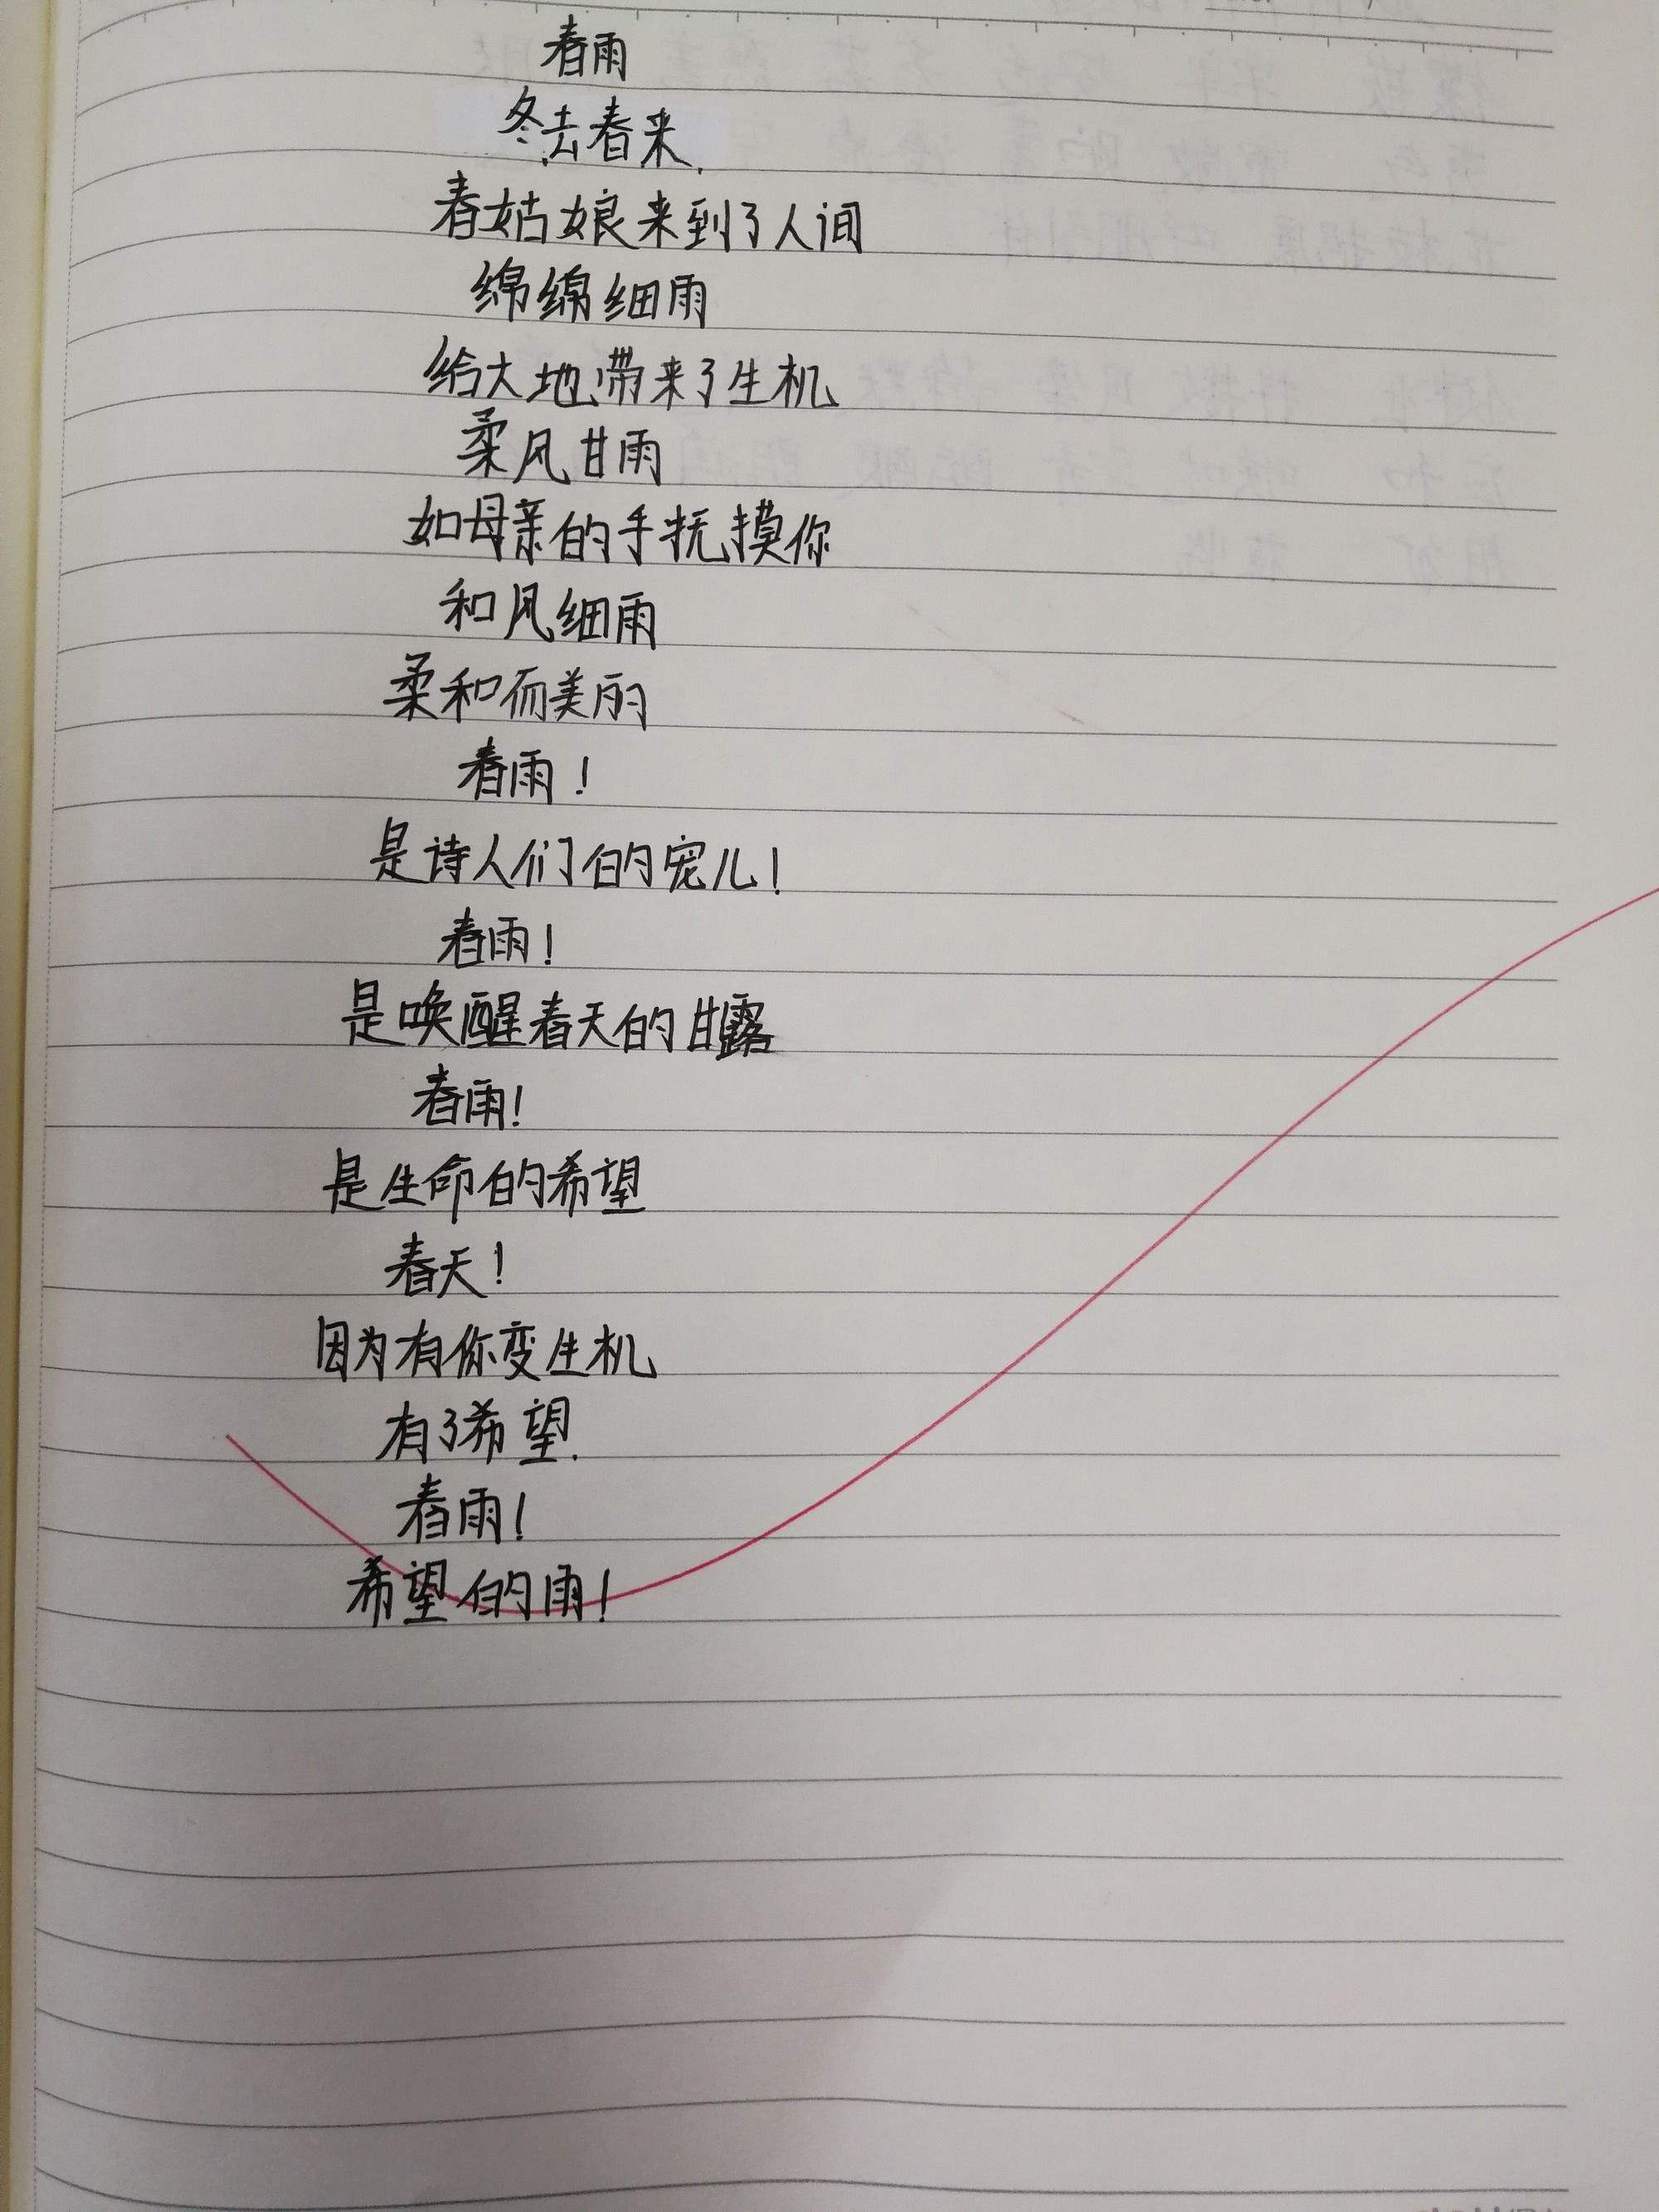 春雨
冬去春来.
春姑娘来到了人间
绵绵细雨
给大地带来了生机
柔风甘雨
如母亲的手抚摸你
和风细雨
柔和而美丽
春雨!
是诗人们的宠儿!
春雨!
是唤醒春天的甘露
春雨!
是生命的希望
春天!
因为有你变生机
有了希望.
春雨!
希望的雨!